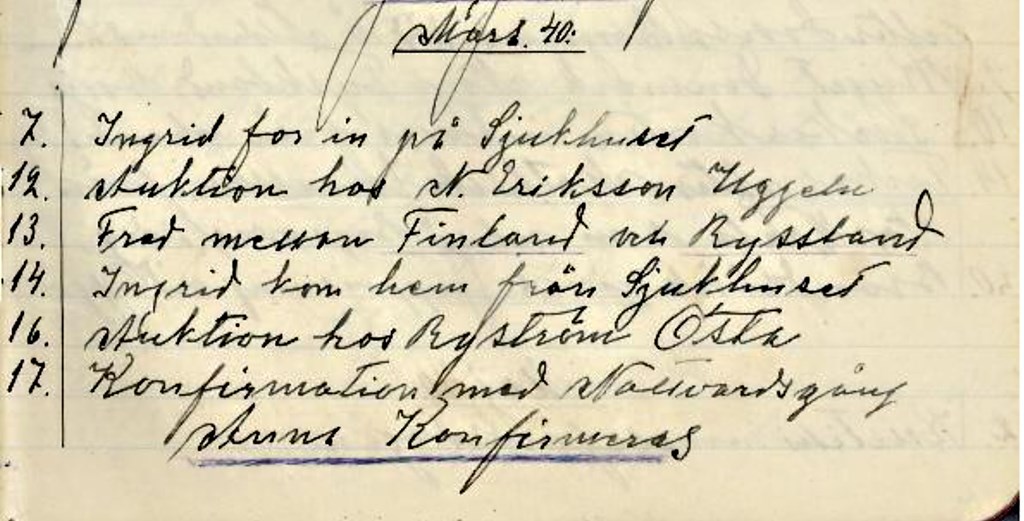 Mars. 40:
7. Ingrid for in på Sjukhuset
12. Auktion hos N. Eriksson Uggeln
13. Fred mellan Finland och Ryssland
14. Ingrid kom hem från Sjukhuset
16. Auktion hos Ryström Östa
17. Konfirmation med Nattvardsgång
Anna Konfirmeras